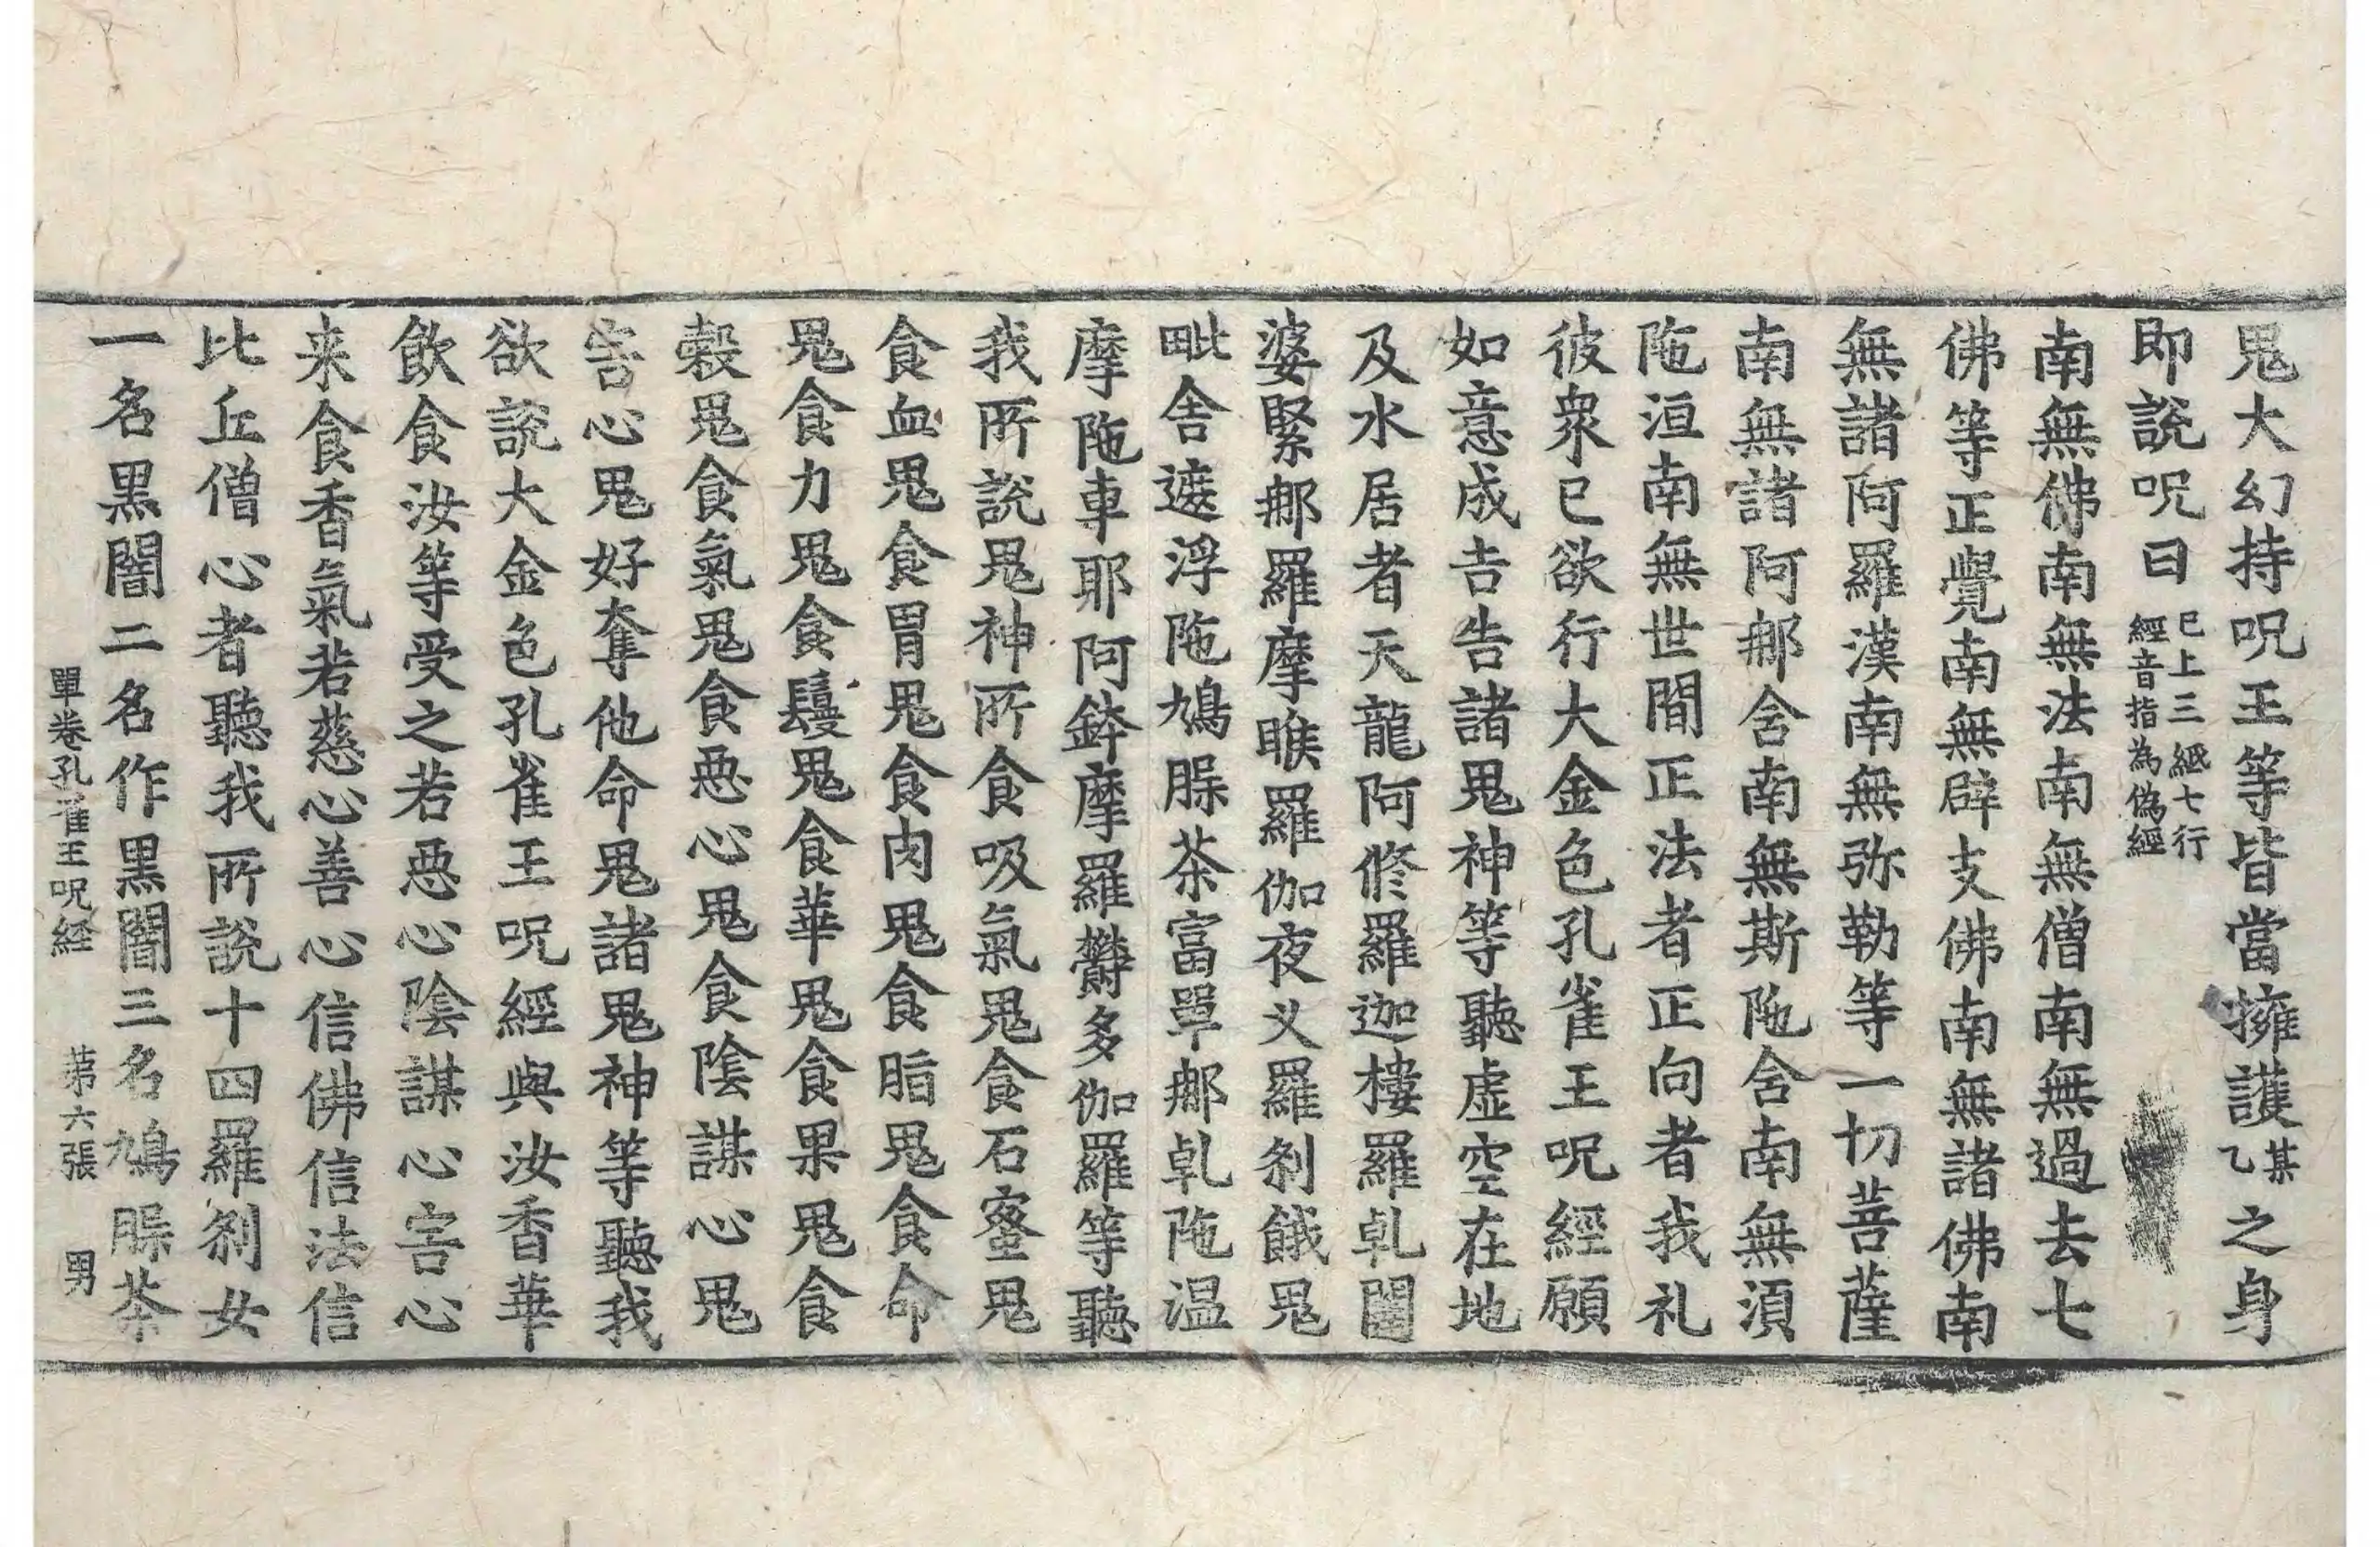 鬼大幻持呪王等皆當擁護某乙之身
即說呪曰已上三紙七行經音指為偽經
南無佛南無法南無僧南無過去七
佛等正覺南無辟支佛南無諸佛南
無諸阿羅漢南無弥勒等一切菩薩
南無諸阿那舍南無斯陁含南無湏
陁洹南無世間正法者正向者我礼
彼衆已欲行大金色孔雀王呪經願
如意成吉告諸鬼神等聽虛空在地
及水居者天龍阿修羅迦樓羅乹闥
婆緊那羅摩睺羅伽夜叉羅剎餓鬼
毗舍遮浮陁鳩腂茶富單那乹陁温
摩陁車耶阿鉢摩羅欝多伽羅等聽
我所說鬼神所食吸氣鬼食石蜜鬼
食血鬼食胃鬼食肉鬼食脂鬼食命
鬼食力鬼食鬘鬼食華鬼食果鬼食
穀鬼食氣鬼食惡心鬼食陰謀心鬼
害心鬼好奪他命鬼諸鬼神等聽我
欲說大金色孔雀王呪經與汝香華
飲食汝等受之若惡心陰謀心害心
来食香氣若慈心善心信佛信法信
比丘僧心者聽我所說十四羅剎女
一名黑闇二名作黑闇三名鳩腂茶
單卷孔雀王呪経 苐六張 男